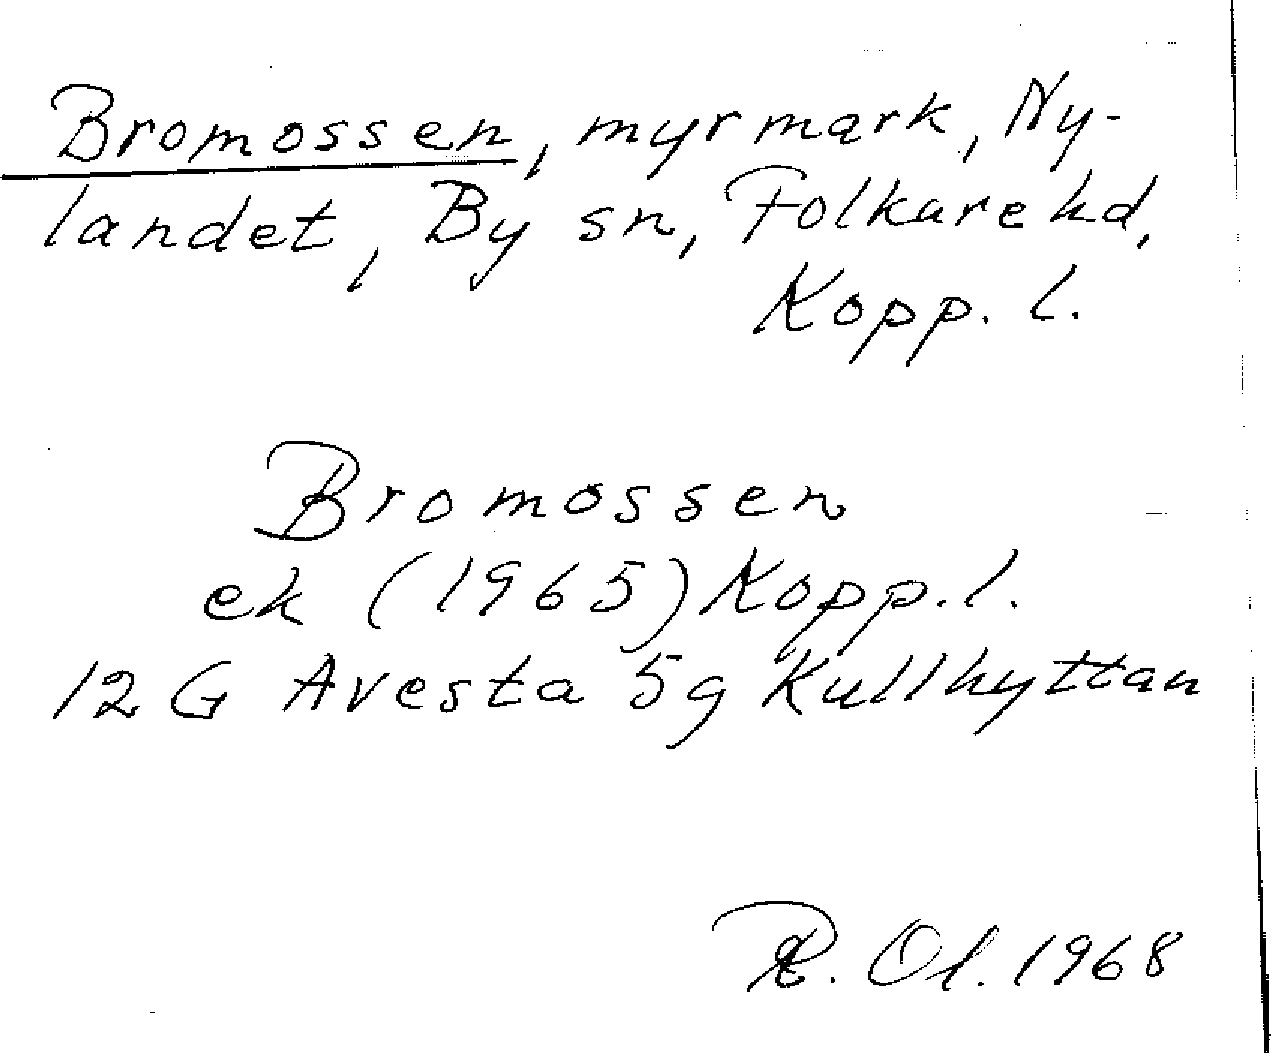 Bromossen, myrmark, Ny-
landet, By sn, Folkare hd,
Kopp. l.
Bromossen
ek (1965) Kopp. l.
12 G Avesta 5g Kullhyttan
R. Ol. 1968